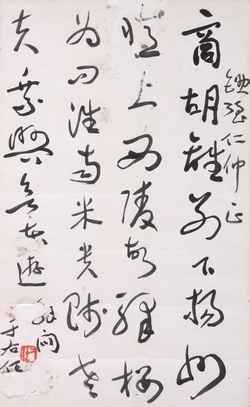 仁仲正
商胡離別下揚州
憶上西陵故驛樓
為問淮南米貴賤老
夫乘興欲東遊
于右任